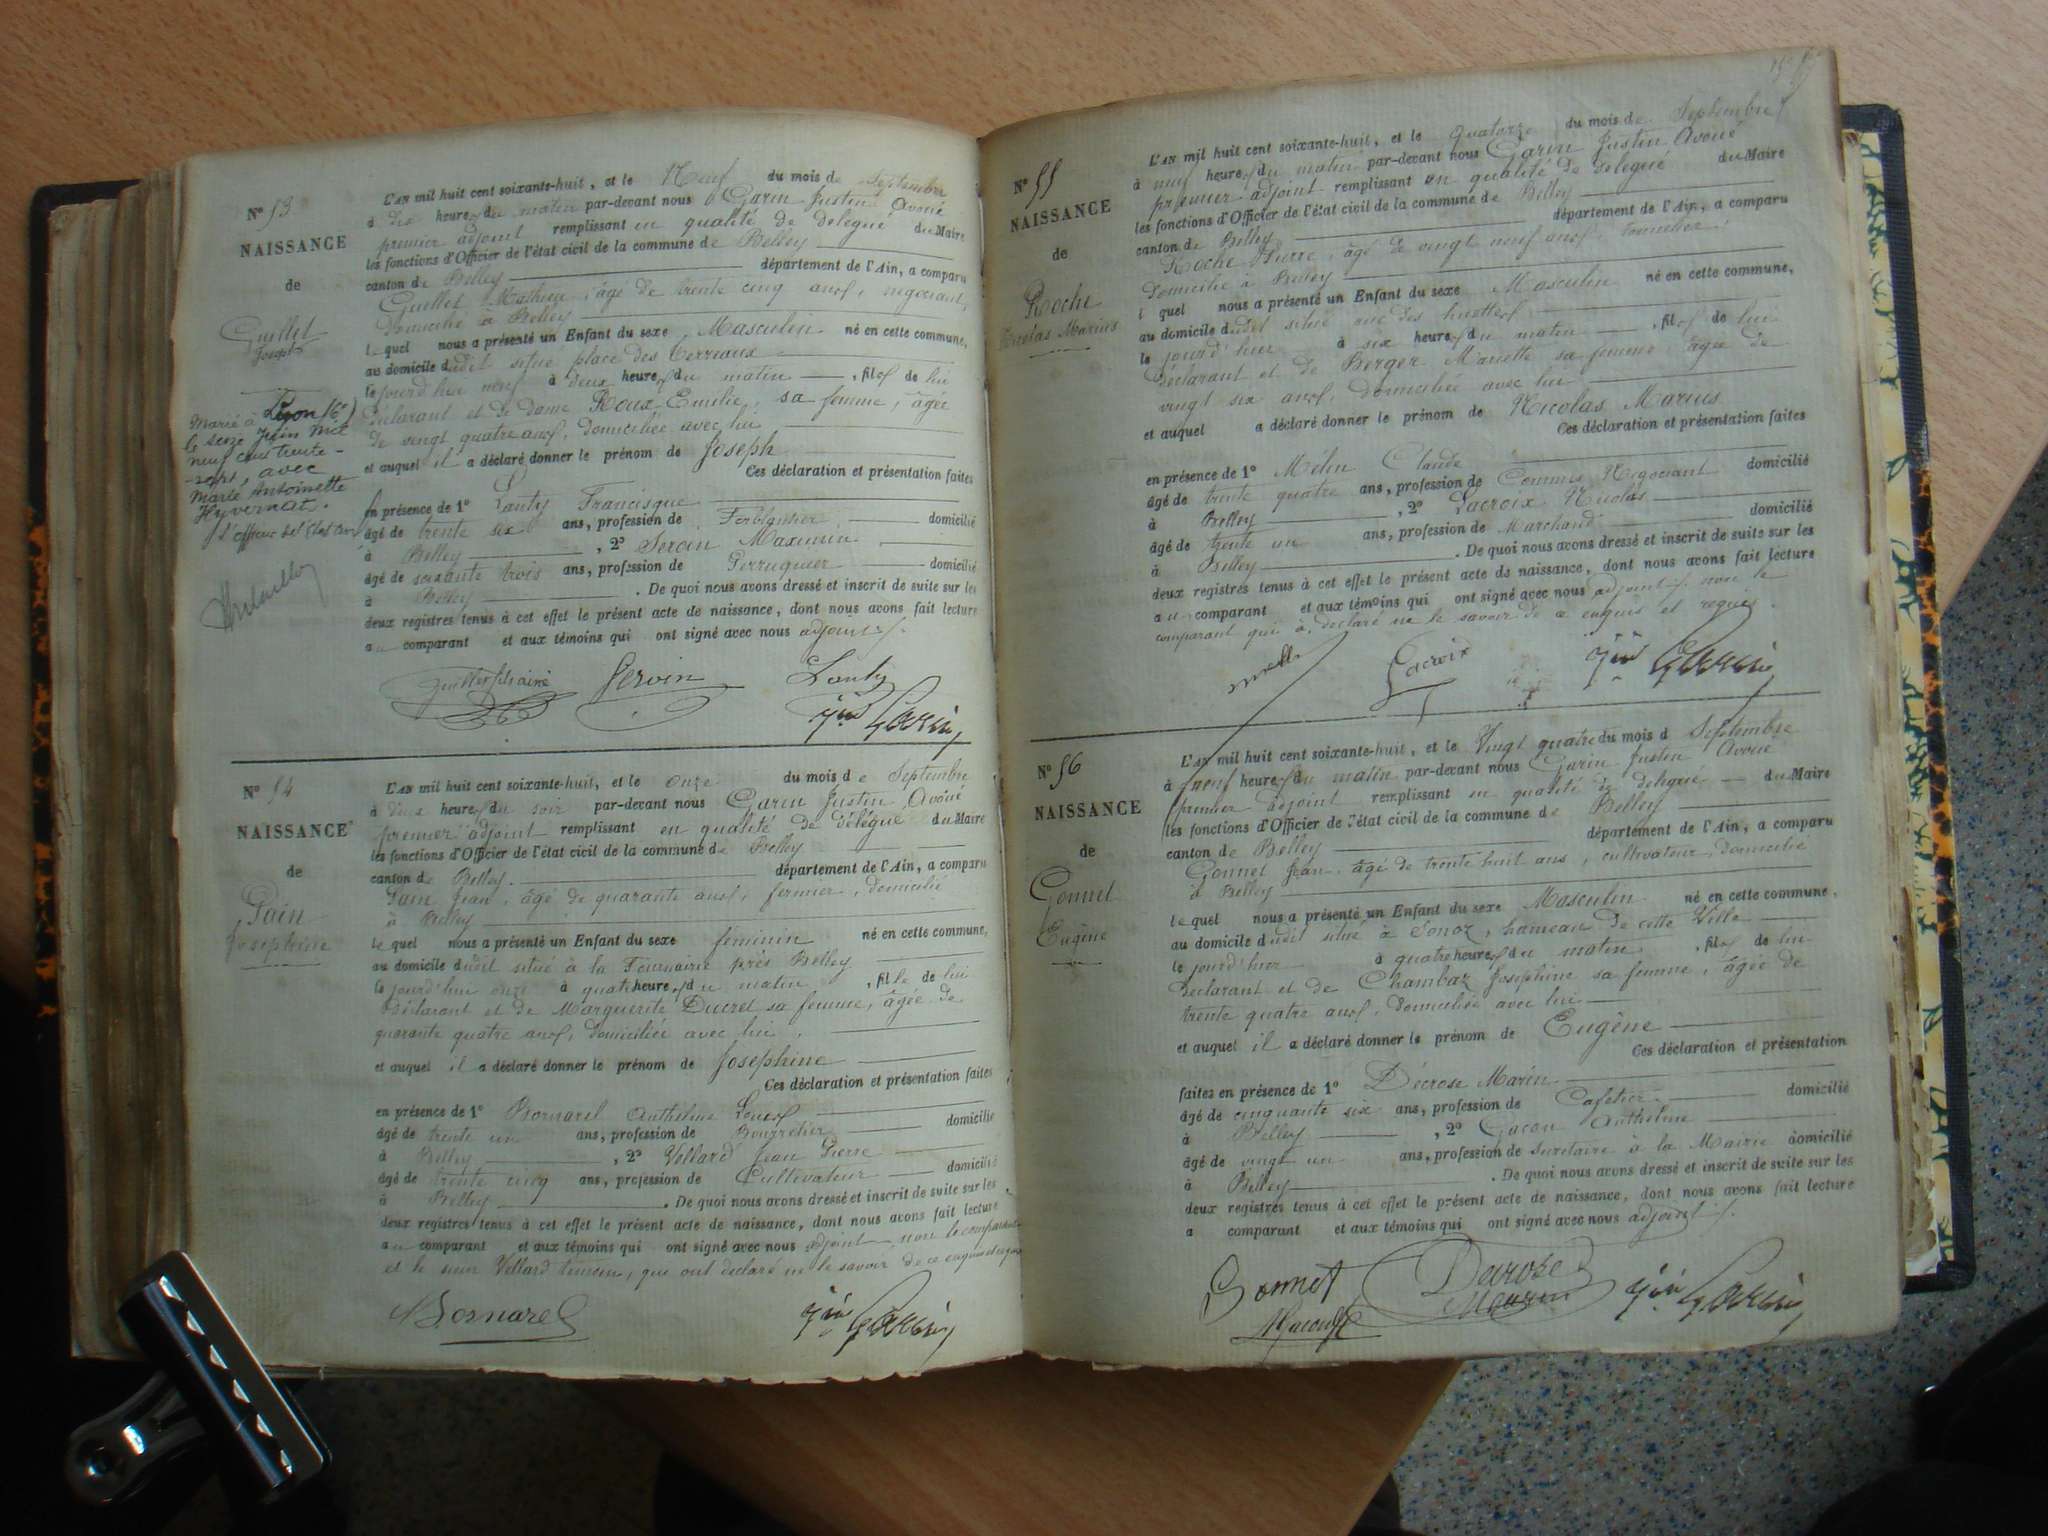 N° 53
NAISSANCE
de
Guillet
Joseph
Marié à Lyon (6e)
le seize Juin mil
neuf cent trente-
-sept, avec
Marie Antoinette
Hyvernat.
L'AN mil huit cent soixante-huit, et le Neuf du mois de Septembre
à dix heures du matin par-devant nous Garin Justin Avoué
premier adjoint remplissant en qualité de délégué du Maire
les fonctions d'Officier de l'état civil de la commune de Belley
canton de Belley département de l'Ain, a comparu
Guillet Mathieu, âgé de trente cinq ans, négociant,
domicilié à Belley
lequel nous a présenté un Enfant du sexe Masculin né en cette commune,
au domicile dudit situé place des Terreaux
le jourd'hui neuf à deux heures du matin, fils de lui
déclarant et de dame Roux Emilie, sa femme, âgée
de vingt quatre ans, domiciliée avec lui
et auquel il a déclaré donner le prénom de Joseph
Ces déclaration et présentation faites
en présence de 1° Lanty Francisque
âgé de trente six ans, profession de Ferblantier domicilié
à Belley, 2° Gervin Maximin
âgé de soixante trois ans, profession de Perruquier domicilié
à Belley. De quoi nous avons dressé et inscrit de suite sur les
deux registres tenus à cet effet le présent acte de naissance, dont nous avons fait lecture
au comparant et aux témoins qui ont signé avec nous adjoint.
Guillet fils ainé Gervin Lanty
Jin Garin
N° 54
NAISSANCE
de
Pain
Josephine
L'AN mil huit cent soixante-huit, et le onze du mois de Septembre
à deux heures du soir par-devant nous Garin Justin Avoué
premier adjoint remplissant en qualité de délégué du Maire
les fonctions d'Officier de l'état civil de la commune de Belley
canton de Belley département de l'Ain, a comparu
Pain Jean, âgé de quarante ans, fermier, domicilié
à Belley
lequel nous a présenté un Enfant du sexe féminin né en cette commune,
au domicile dudit situé à la près Belley
le jourd'hui onze à quatre heures du matin, fille de lui
déclarant et de Marguerite Ducret sa femme, âgée de
quarante quatre ans, domiciliée avec lui,
et auquel il a déclaré donner le prénom de Josephine
Ces déclaration et présentation faites
en présence de 1° Bornarel Anthelme Louis
âgé de trente un ans, profession de Bourrelier domicilié
à Belley, 2° Vellard Jean Pierre
âgé de trente cinq ans, profession de Cultivateur domicilié
à Belley. De quoi nous avons dressé et inscrit de suite sur les
deux registres tenus à cet effet le présent acte de naissance, dont nous avons fait lecture
au comparant et aux témoins qui ont signé avec nous adjoint non le comparant
et le sieur Vellard témoin, qui ont déclaré ne le savoir de ce enquis et requis
Bornarel Jin Garin
N° 55
NAISSANCE
de
Roche
Nicolas Marius
L'AN mil huit cent soixante-huit, et le quatorze du mois de Septembre
à neuf heures du matin par-devant nous Garin Justin Avoué
premier adjoint remplissant en qualité de délégué du Maire
les fonctions d'Officier de l'état civil de la commune de Belley
canton de Belley département de l'Ain, a comparu
Roche Pierre, âgé de vingt neuf ans, tonnelier,
domicilié à Belley
lequel nous a présenté un Enfant du sexe Masculin né en cette commune,
au domicile dudit situé rue des
le jourd'hui à six heures du matin, fils de lui
déclarant et de Berger Mariette sa femme âgée de
vingt six ans, domiciliée avec lui
et auquel a déclaré donner le prénom de Nicolas Marius
Ces déclaration et présentation faites
en présence de 1° Mélin Claude
âgé de trente quatre ans, profession de Commis Négociant domicilié
à Belley, 2° Lacroix Nicolas
âgé de trente un ans, profession de Marchand domicilié
à Belley. De quoi nous avons dressé et inscrit de suite sur les
deux registres tenus à cet effet le présent acte de naissance, dont nous avons fait lecture
au comparant et aux témoins qui ont signé avec nous adjoint non le
comparant qui a déclaré ne le savoir de ce enquis et requis.
Lacroix Jin Garin
N° 56
NAISSANCE
de
Gonnet
Eugène
L'AN mil huit cent soixante-huit, et le Vingt quatre du mois d Septembre
à neuf heures du matin par-devant nous Garin Justin Avoué
premier adjoint remplissant en qualité de délégué du Maire
les fonctions d'Officier de l'état civil de la commune de Belley
canton de Belley département de l'Ain, a comparu
Gonnet Jean, âgé de trente huit ans, cultivateur, domicilié
à Belley
lequel nous a présenté un Enfant du sexe Masculin né en cette commune,
au domicile dudit situé à Sonoz, hameau de cette Ville
le jourd'hui à quatre heures du matin, fils de lui
déclarant et de Chambaz Josephine sa femme, âgée de
trente quatre ans, domiciliée avec lui
et auquel il a déclaré donner le prénom de Eugène
Ces déclaration et présentation
faites en présence de 1° Décrose Marin
âgé de cinquante six ans, profession de Cafetier domicilié
à Belley, 2° Gacon Anthelme
âgé de vingt un ans, profession de secrétaire à la Mairie domicilié
à Belley. De quoi nous avons dressé et inscrit de suite sur les
deux registres tenus à cet effet le présent acte de naissance, dont nous avons fait lecture
a comparant et aux témoins qui ont signé avec nous adjoint.
Gonnet Decrose Marin Jin Garin